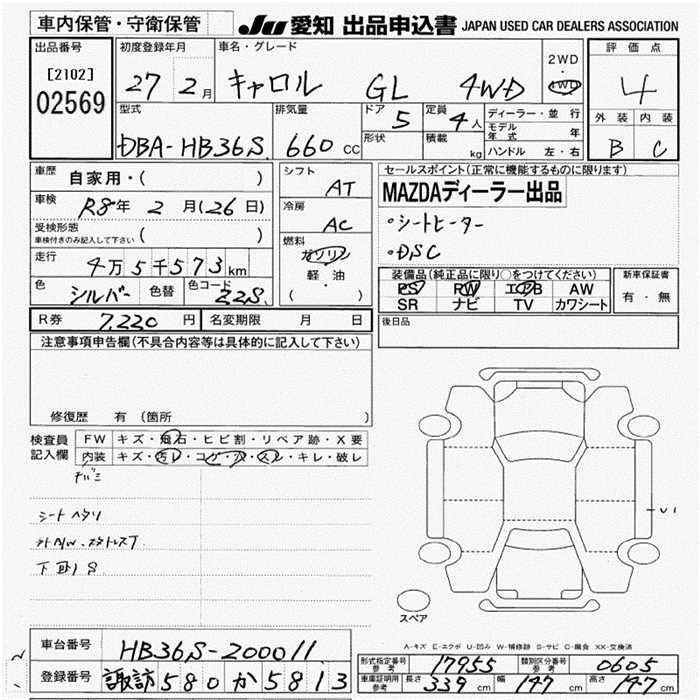 車内保管・守衛保管 JU 愛知 出品申込書 JAPAN USED CAR DEALERS ASSOCIATION
出品番号 初度登録年月 車名・グレード 2WD・4WD 評価点
[2102] 02569 27 2月 キャロル GL 4WD 4
型式 排気量 ドア 定員 ディーラー・並行 外装 内装
DBA-HB36S. 660 cc 5 4人 モデル年式 年 B C
形状 積載 kg ハンドル 左・右
車歴 自家用・( ) シフト AT セールスポイント(正常に機能するものに限ります)
車検 R8年 2月(26日) 冷房 AC MAZDAディーラー出品
受検形態 車検付きのみ記入して下さい ( ) 。シートヒーター
走行 4万5千573km 燃料 ガソリン 軽・油 ( ) 。DSC
色 シルバー 色替 色コード Z2S.
装備品(純正品に限り○をつけてください) 新車保証書
PS PW エアB AW 有・無
SR ナビ TV カワシート
R券 7.220円 名変期限 月 日 後日品
注意事項申告欄(不具合内容等は具体的に記入して下さい)
修復歴 有(箇所 )
検査員記入欄 FW キズ・飛石・ヒビ割・リペア跡・X要
内装 キズ・汚レ・コゲ・穴・スレ・キレ・破レ
シートヘタリ
下回りS
U1
スペア
A-キズ E-エクボ U-凹み W-補修跡 S-サビ C-腐食 XX-交換済
車台番号 HB36S-200011
登録番号 諏訪 580 か 5813
型式指定番号 参考 17955 類別区分番号 参考 0605
車庫証明用 参考 長さ 339cm 幅 147cm 高さ 147cm